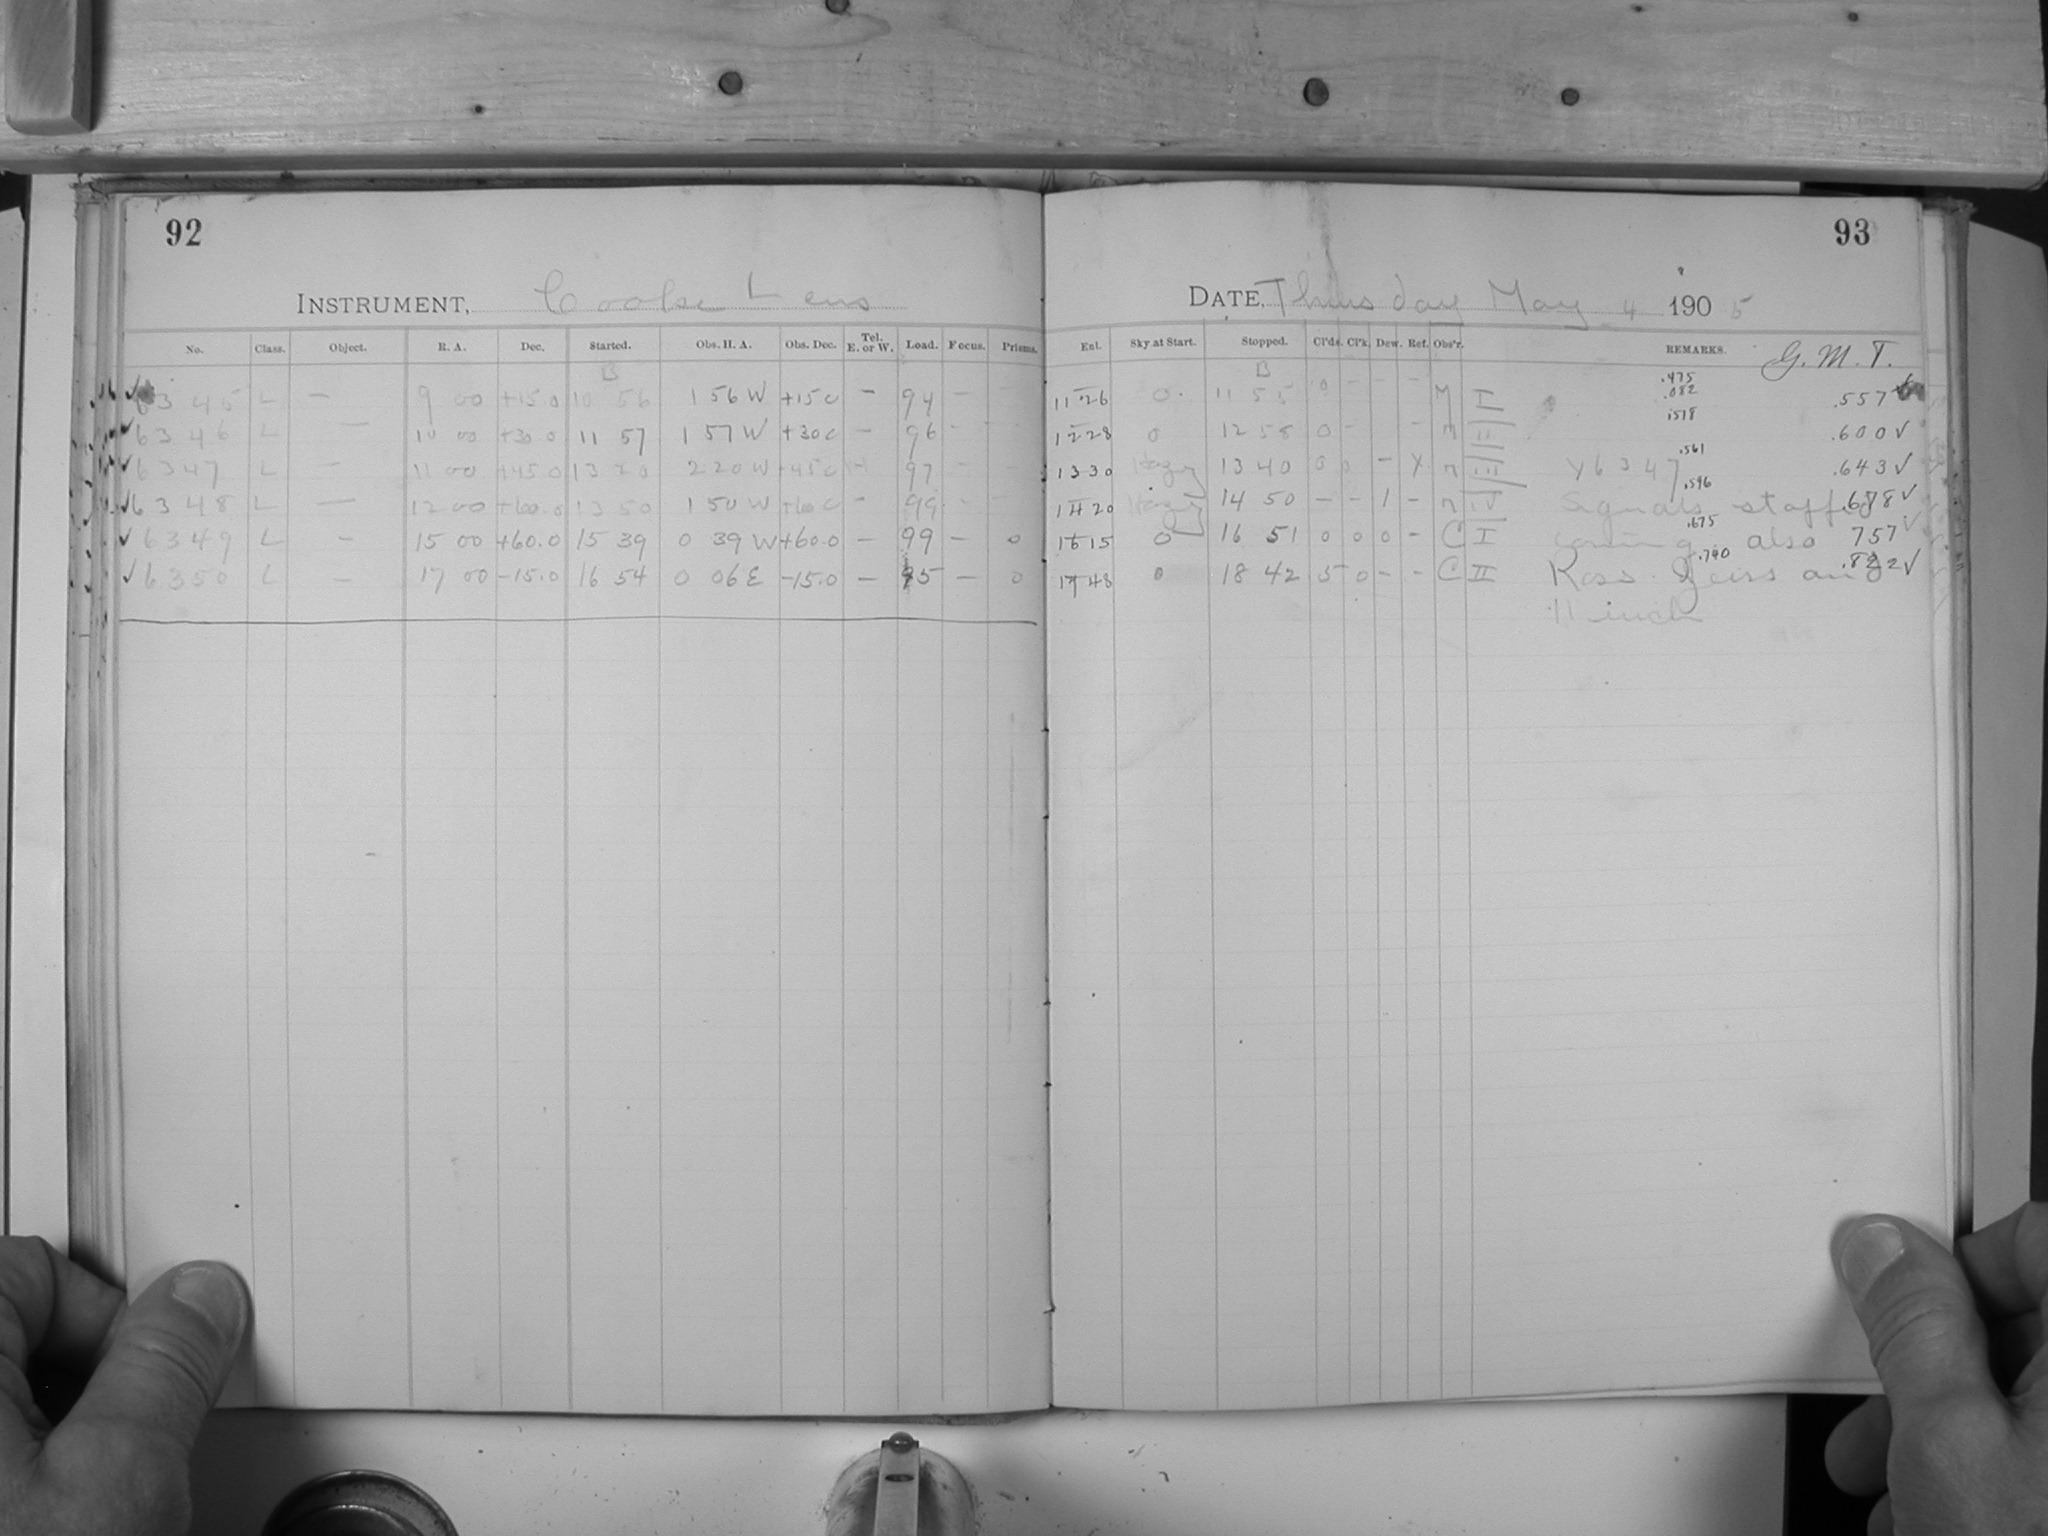 92
93
INSTRUMENT, Cooke Lens
DATE, Thursday May 4 1905
No. Class. Object. R. A. Dec. Started. Obs. H. A. Obs. Dec. Tel. E. or W. Load. Focus. Prisms. Ent. Sky at Start. Stopped. Cl'ds. Cl'k. Dew. Ref. Obs'r. REMARKS. G. M. T.
B B .475
6345 L — 9 00 +15.0 10 56 1 56 W +15 0 — 94 — 11 26 0 11 55 0 - - - M I .082 .557
.518
6346 L — 10 00 +30.0 11 57 1 57 W +30 0 — 96 - 12 28 0 12 58 0 - - M II .600 ✓
.561
6347 L — 11 00 +45.0 13 20 2 20 W +45 0 97 - 13 30 Hazy 13 40 0 0 - Y M III Y 6347 .643 ✓
.596
6348 L — 12 00 +60.0 13 50 1 50 W +60 0 - 99 - 14 20 Hazy 14 50 - - 1 - M IV Signals stopped .678 ✓
.675
6349 L — 15 00 +60.0 15 39 0 39 W +60.0 — 99 — 0 16 15 0 16 51 0 0 0 - C I coming. also 757 ✓
.740
6350 L — 17 00 -15.0 16 54 0 06 E -15.0 — 95 — 0 17 48 0 18 42 5 0 - - C II Ross Zeiss and .822 ✓
11 inch